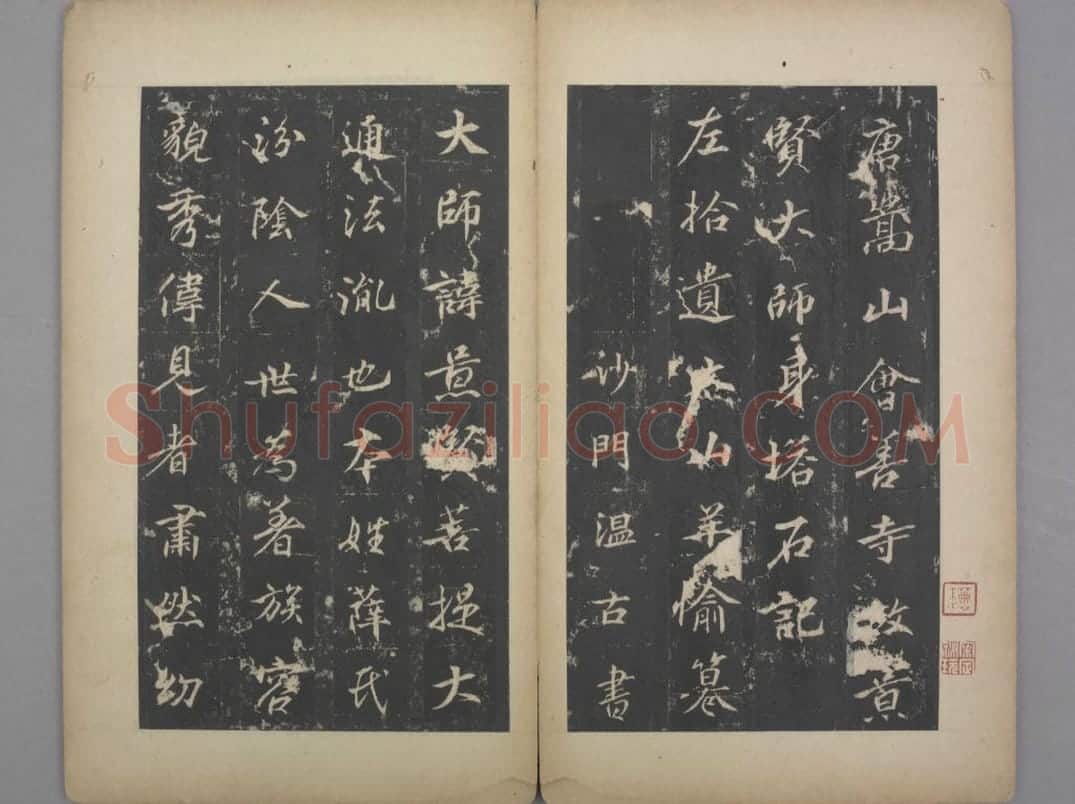 唐嵩山會善寺故景
賢大師身塔石記
左拾遺泰山羊愉纂
沙門温古書
大師諱景賢菩提大
通法胤也本姓薛氏
汾陰人世為著族容
貌秀偉見者肅然幼
Shufaziliao.COM